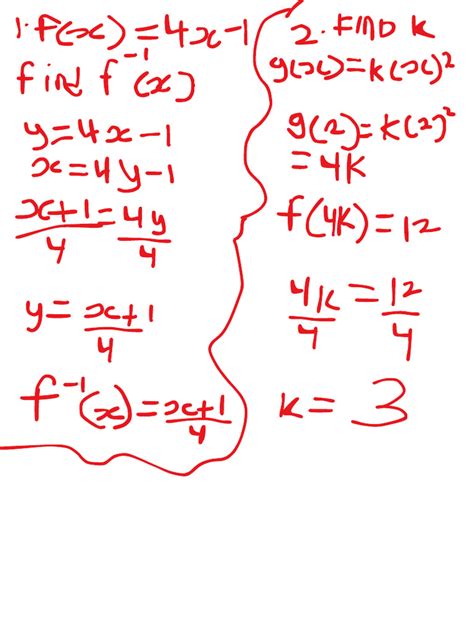 1. f(x) = 4x-1
find f⁻¹(x)
y = 4x-1
x = 4y-1
x+1/4 = 4y/4
y = x+1/4
f⁻¹(x) = x+1/4
2. FIND K
g(x) = k(x)²
g(2) = k(2)²
= 4K
f(4K) = 12
4k/4 = 12/4
k = 3